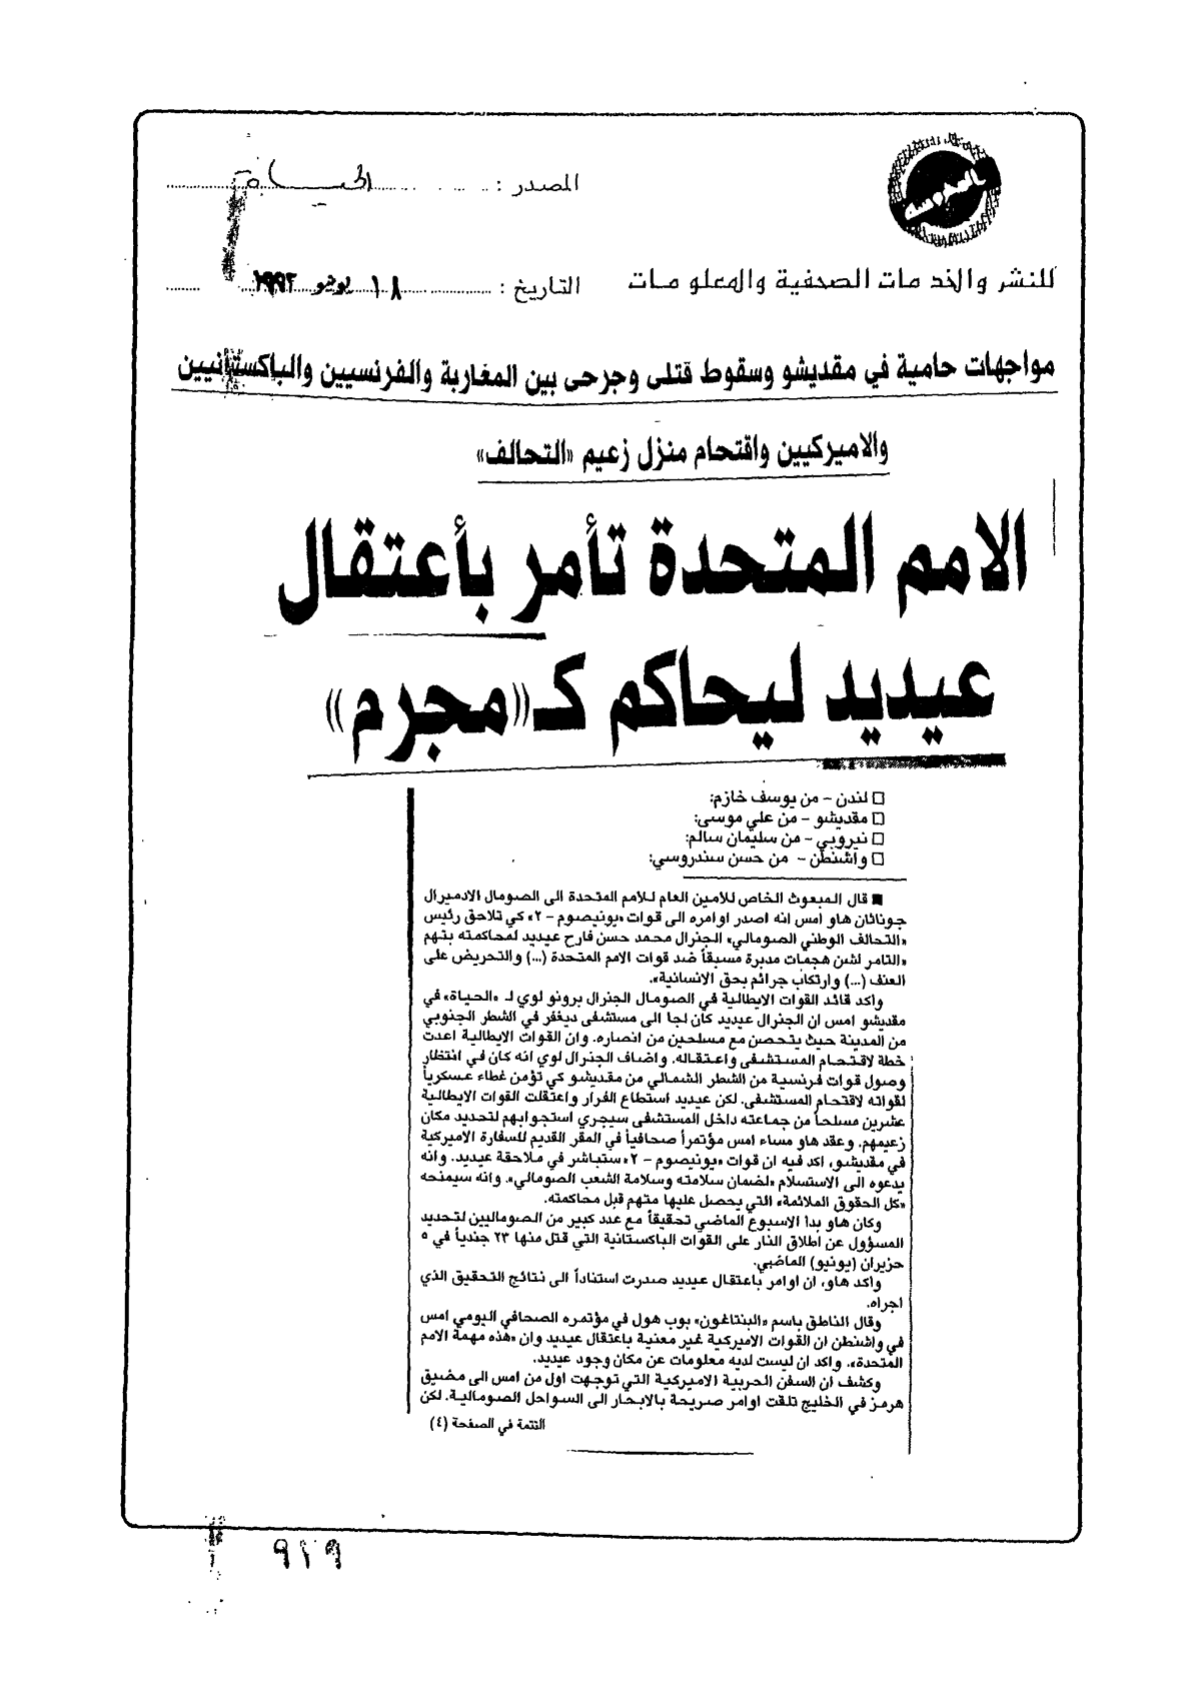 المصدر : الحياة
للنشر والخدمات الصحفية والمعلومات
التاريخ : ١٨ يونيو ١٩٩٣
مواجهات حامية في مقديشو وسقوط قتلى وجرحى بين المغاربة والفرنسيين والباكستانيين
والاميركيين واقتحام منزل زعيم «التحالف»
الامم المتحدة تأمر بأعتقال
عيديد ليحاكم كـ«مجرم»
□ لندن - من يوسف خازم:
□ مقديشو - من علي موسى:
□ نيروبي - من سليمان سالم:
□ واشنطن - من حسن سندروسي:
■ قال المبعوث الخاص للامين العام للامم المتحدة الى الصومال الادميرال
جوناثان هاو امس انه اصدر اوامره الى قوات «يونيصوم - ٢» كي تلاحق رئيس
«التحالف الوطني الصومالي» الجنرال محمد حسن فارح عيديد لمحاكمته بتهم
«التامر لشن هجمات مدبرة مسبقاً ضد قوات الامم المتحدة (...) والتحريض على
العنف (...) وارتكاب جرائم بحق الانسانية».
واكد قائد القوات الايطالية في الصومال الجنرال برونو لوي لـ «الحياة» في
مقديشو امس ان الجنرال عيديد كان لجا الى مستشفى ديغفر في الشطر الجنوبي
من المدينة حيث يتحصن مع مسلحين من انصاره. وان القوات الايطالية اعدت
خطة لاقتحام المستشفى واعتقاله. واضاف الجنرال لوي انه كان في انتظار
وصول قوات فرنسية من الشطر الشمالي من مقديشو كي تؤمن غطاء عسكرياً
لقواته لاقتحام المستشفى. لكن عيديد استطاع الفرار واعتقلت القوات الايطالية
عشرين مسلحاً من جماعته داخل المستشفى سيجري استجوابهم لتحديد مكان
زعيمهم. وعقد هاو مساء امس مؤتمراً صحافياً في المقر القديم للسفارة الاميركية
في مقديشو، اكد فيه ان قوات «يونيصوم - ٢» ستباشر في ملاحقة عيديد. وانه
يدعوه الى الاستسلام «لضمان سلامته وسلامة الشعب الصومالي». وانه سيمنحه
«كل الحقوق الملائمة» التي يحصل عليها متهم قبل محاكمته.
وكان هاو بدا الاسبوع الماضي تحقيقاً مع عدد كبير من الصوماليين لتحديد
المسؤول عن اطلاق النار على القوات الباكستانية التي قتل منها ٢٣ جندياً في ٥
حزيران (يونيو) الماضي.
واكد هاو، ان اوامر باعتقال عيديد صدرت استناداً الى نتائج التحقيق الذي
اجراه.
وقال الناطق باسم «البنتاغون» بوب هول في مؤتمره الصحافي اليومي امس
في واشنطن ان القوات الاميركية غير معنية باعتقال عيديد وان «هذه مهمة الامم
المتحدة». واكد ان ليست لديه معلومات عن مكان وجود عيديد.
وكشف ان السفن الحربية الاميركية التي توجهت اول من امس الى مضيق
هرمز في الخليج تلقت اوامر صريحة بالابحار الى السواحل الصومالية. لكن
التتمة في الصفحة (٤)
٩٢٩